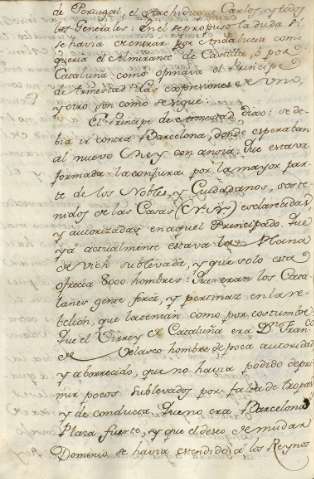 de Portugal, el Archiduque Carlos, y todos
los Generales: En el se propuso la duda si
se havia de entrar por Andalucia como
queria el Almirante de Castilla, ò por
Cataluña como opinava el Principe
de Armestad: las expresiones de uno,
y otro son como se sigue:
El Principe de Armestad dijo: se de-
bia ir contra Barcelona, donde esperaban
al nuevo Rey con ansia. Que estava
formada la conjura por la mayor par-
te de los Nobles, y Ciudadanos, soste-
nidos de las Casas esclarecidas
y autorizadas en aquel Principado. Que
ya actualmente estava la Plana
de Vich sublevada, y que solo esta
ofrecia 8000 hombres: Que eran los Cata-
lanes gente feróz, y pertinaz en la re-
belión, que la tenian como por costumbre.
Que el Virrey de Cataluña era Dn. Franco.
de Velasco hombre de poca autoridad
y aborrecido, que no havia podido depri-
mir pocos sublevados por falta de tropas
y de conducta. Que no era Barcelona
Plaza fuerte, y que el deseo de mudar
Dominio se havia estendido à los Reynos